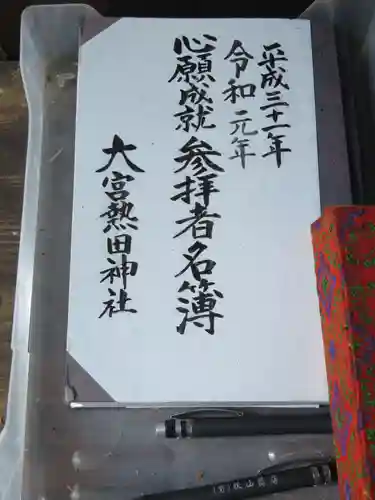 平成三十一年
令和元年
心願成就参拝者名簿
大宮熱田神社